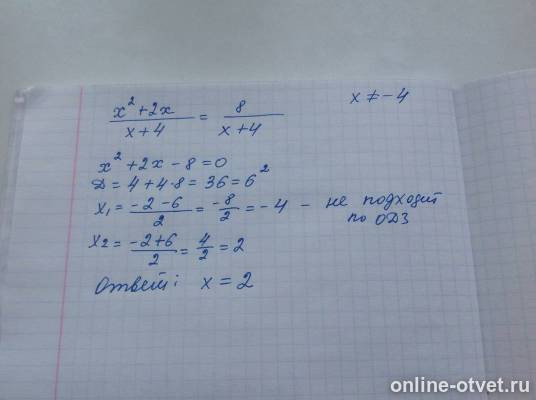 x² + 2x / x + 4 = 8 / x + 4    x ≠ -4
x² + 2x - 8 = 0
Д = 4 + 4·8 = 36 = 6²
x₁ = -2 - 6 / 2 = -8 / 2 = -4 - не подходит по ОДЗ
x₂ = -2 + 6 / 2 = 4 / 2 = 2
Ответ: x = 2
online-otvet.ru